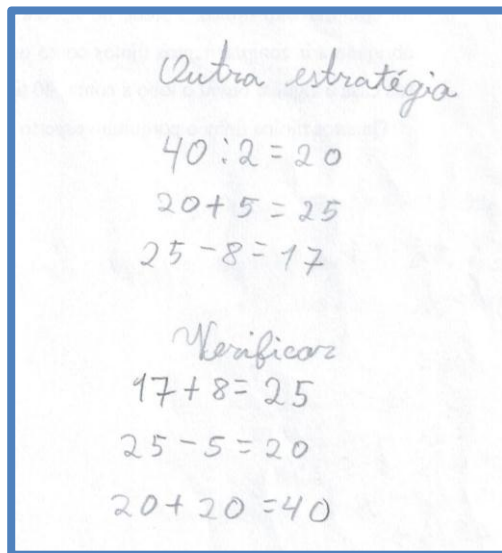 Outra estratégia
40:2=20
20+5=25
25-8=17
Verificar
17+8=25
25-5=20
20+20=40